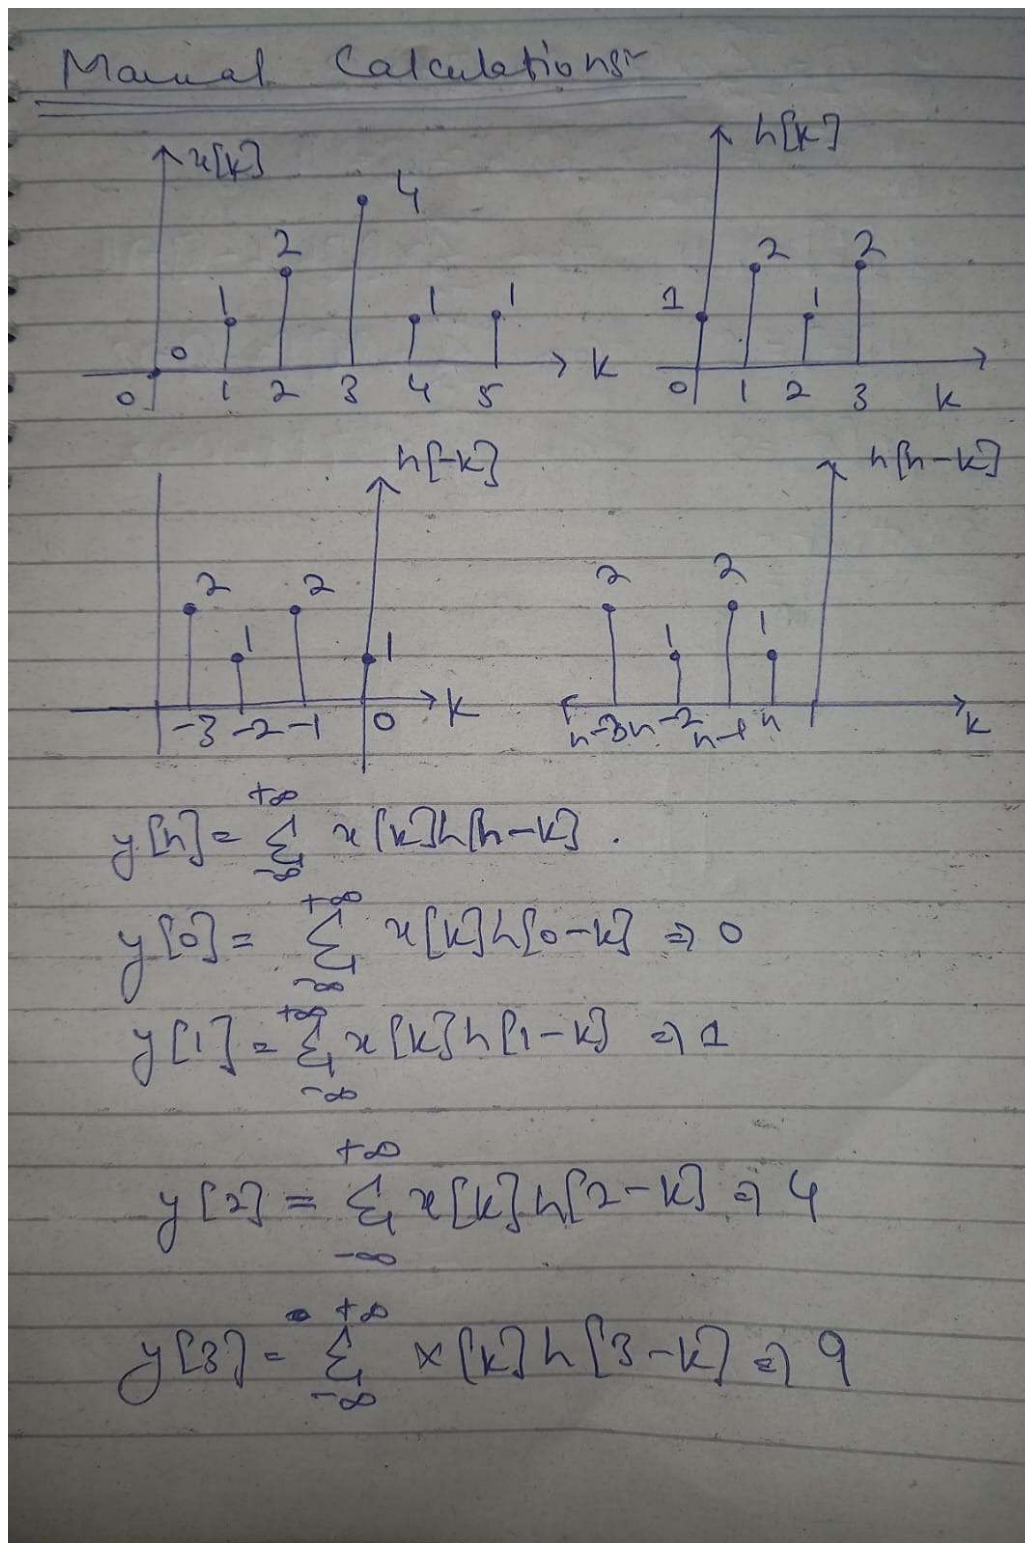 Manual Calculations:-
x[k]
h[k]
4
2
1
0
1
1
k
0
1
2
3
4
5
1
2
1
2
0
1
2
3
k
h[-k]
h[n-k]
2
1
2
1
-3
-2
-1
0
k
2
1
2
1
n-3
n-2
n-1
n
k
y[n] = +∞ Σ -∞ x[k]h[n-k].
y[0] = +∞ Σ -∞ x[k]h[0-k] ⇒ 0
y[1] = +∞ Σ -∞ x[k]h[1-k] ⇒ 1
y[2] = +∞ Σ -∞ x[k]h[2-k] ⇒ 4
y[3] = +∞ Σ -∞ x[k]h[3-k] ⇒ 9